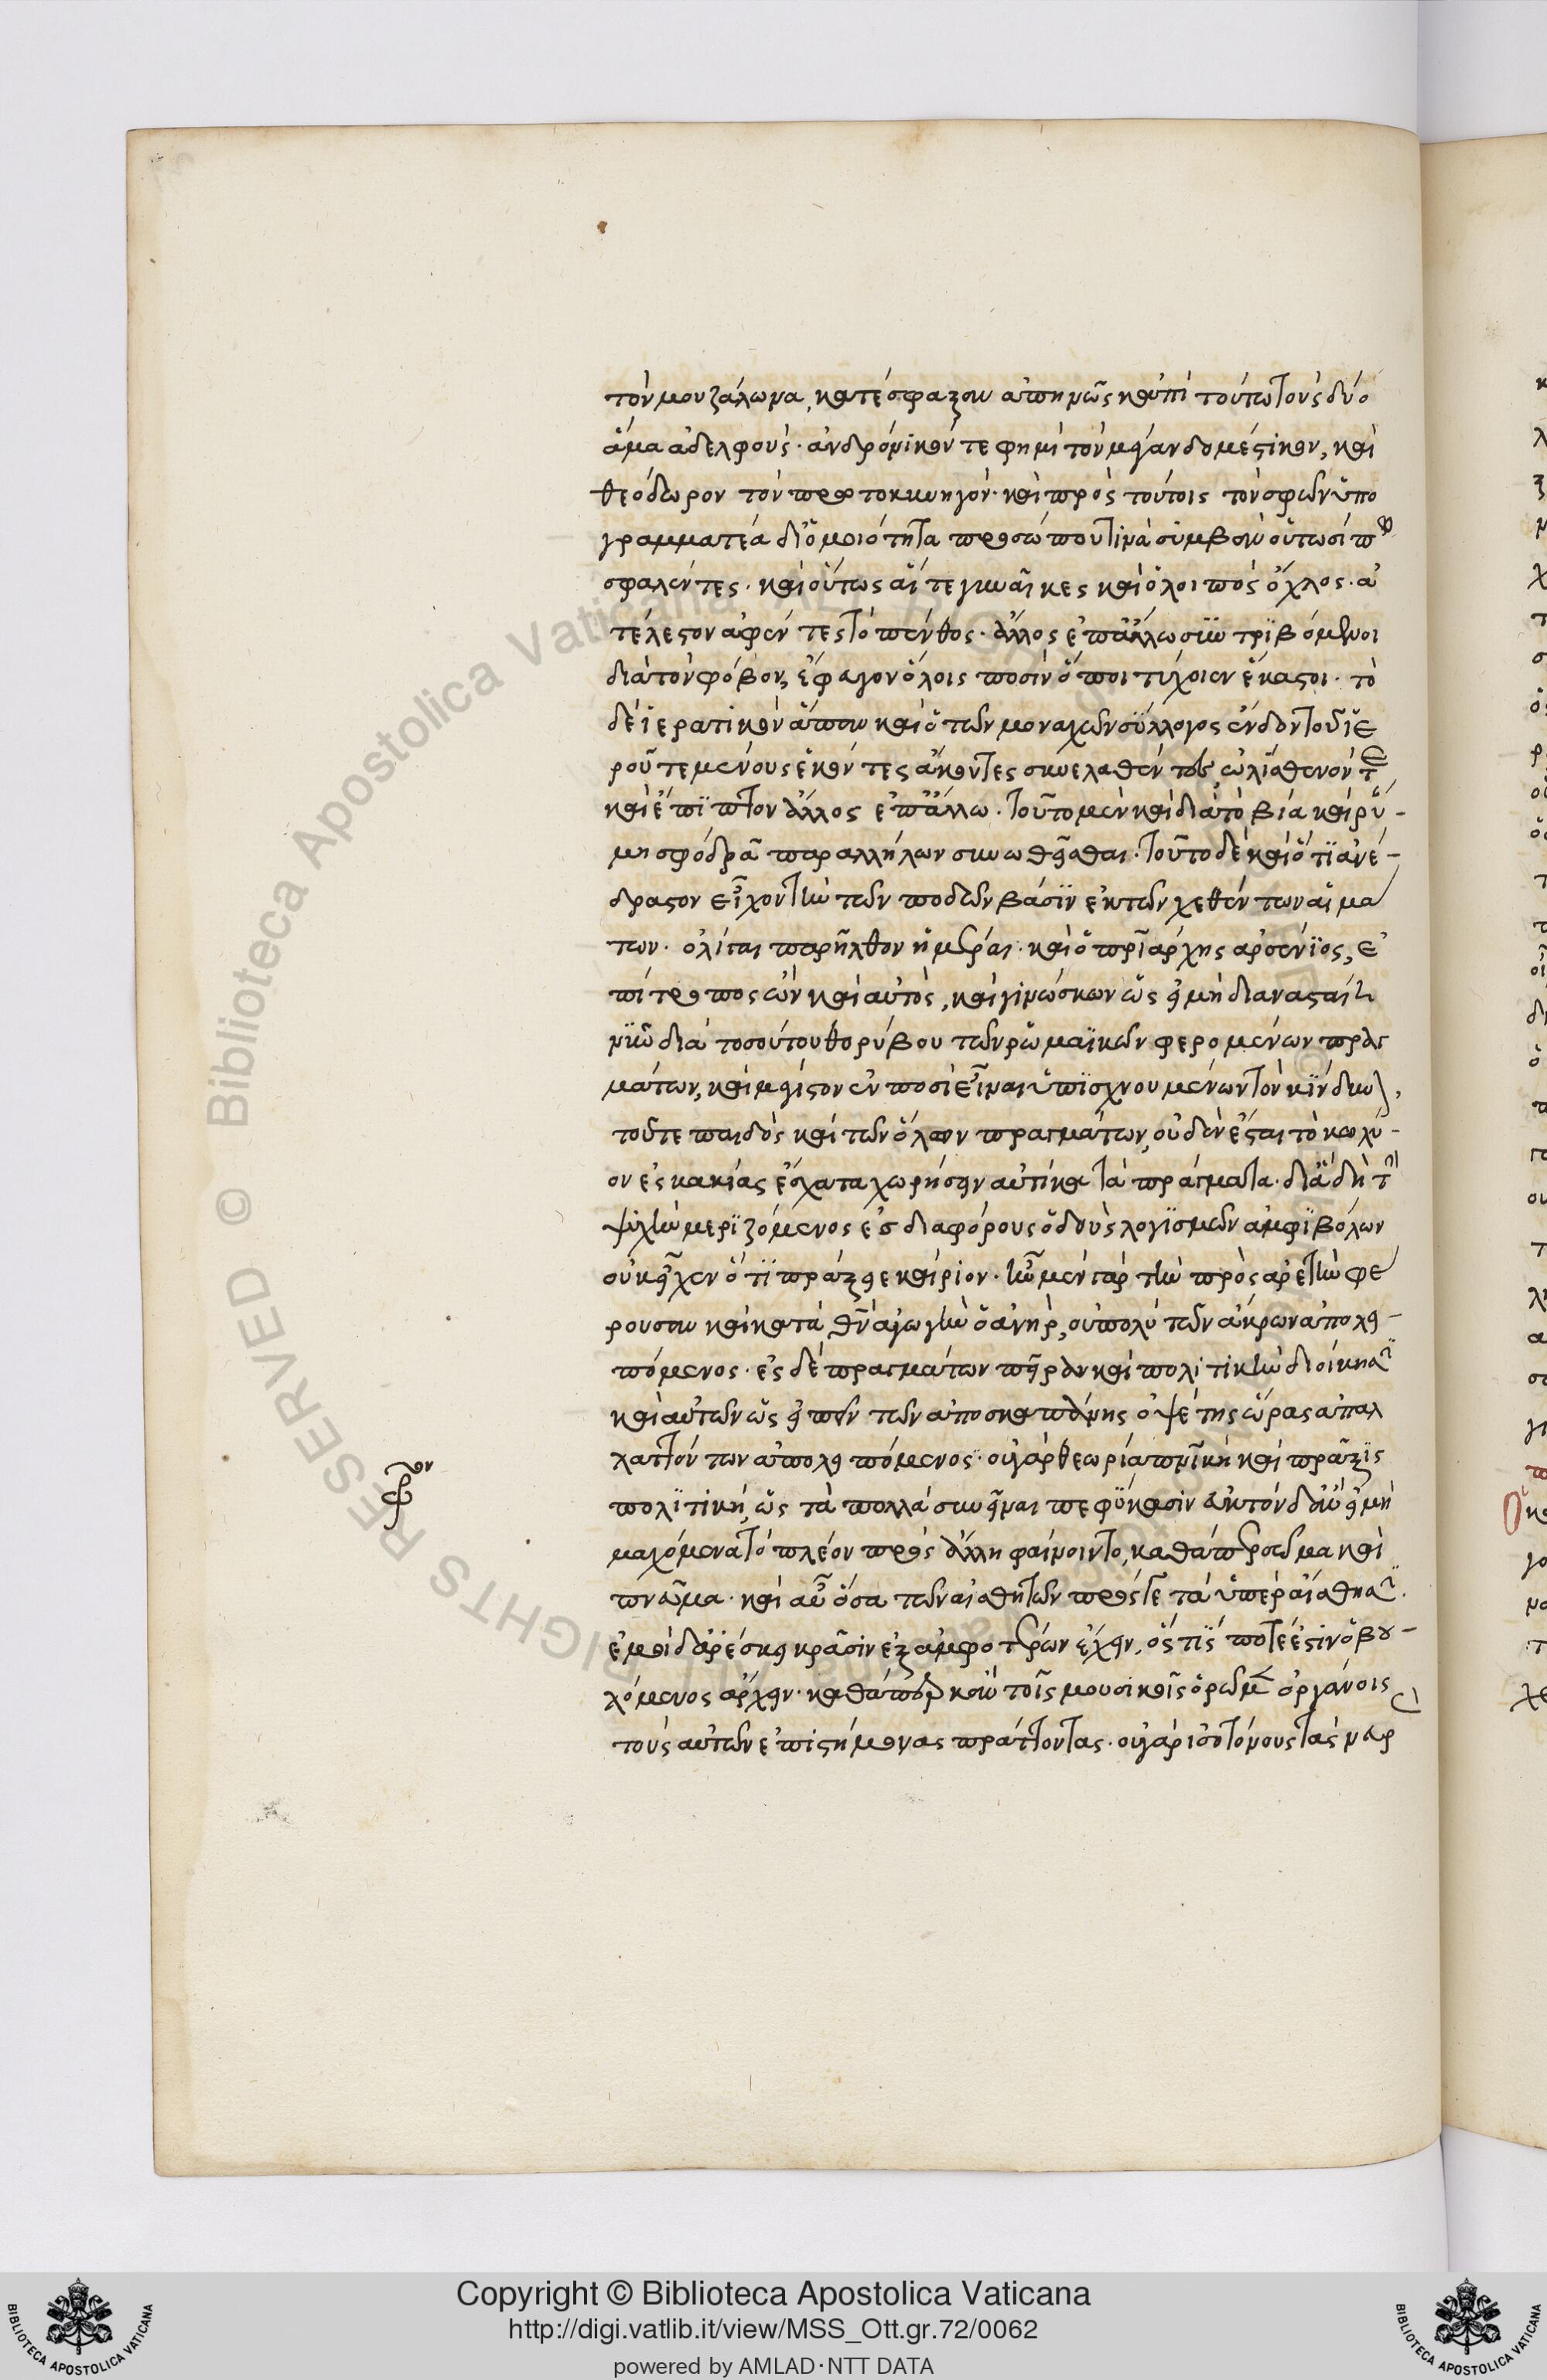 τὸν μουζάλωνα, κατέσφαξαν ἀπηνῶς κἀπὶ τούτω τοὺς δύο
ἅμα ἀδελφούς· ἀνδρόνικόν τε φημὶ τὸν μέγαν δομέστικον, καὶ
θεόδωρον τὸν πρωτοκυνηγόν· καὶ πρὸς τούτοις τὸν σφῶν ὑπο
γραμματέα δι' ὁμοιότητα προσώπου τινὰ σύμβασαν οὑτωσί πως
σφαλέντες· καὶ οὕτως αἵ τε γυναῖκες καὶ ὅλοι πᾶς ὄχλος· ἀ
τέλεστον ἀφέντες τὸ πένθος· ἄλλος ἐπ' ἄλλω συντριβόμενοι
διὰ τὸν φόβον, ἔφευγον ὅλοις ποσὶν ὅποι τύχοιεν ἕκαστοι· τὸ
δὲ ἱερατικὸν ἅπαν καὶ ὁ τῶν μοναχῶν σύλλογος ἔνδον τοῦ ἱε
ροῦ τεμένους ἑκόντες ἄκοντες συνελαθέντες, ὠλίσθαινόν τε
καὶ ἔπιπτον ἄλλος ἐπ' ἄλλω· τοῦτο μὲν καὶ διὰ τὸ βία καὶ ῥύ-
μη σφόδρα παρ' ἀλλήλων συνωθεῖσθαι· τοῦτο δὲ καὶ ὅτι ἀνέ-
δραστον εἶχον τὴν τῶν ποδῶν βάσιν ἐκ τῶν χεθέντων αἱμά
των· ὀλίγαι παρῆλθον ἡμέραι· καὶ ὁ πατριάρχης ἀρσένιος, ἐ
πίτροπος ὢν καὶ αὐτὸς, καὶ γινώσκων ὡς εἰ μὴ διανασταίη
νῦν διὰ τοσούτου θορύβου τῶν ῥωμαϊκῶν φερομένων πραγ
μάτων, καὶ μέγιστον ἐν ποσὶ εἶναι ὑπισχνουμένων τὸν κίνδυνον,
τοῦ τε παιδὸς καὶ τῶν ὅλων πραγμάτων, οὐδὲν ἔσται τὸ κωλύ-
ον ἐς κακίας ἔσχατα χωρήσειν αὐτίκα τὰ πράγματα· διὰ δὴ τὴν
ψυχὴν μεριζόμενος ἐς διαφόρους ὁδοὺς λογισμῶν ἀμφιβόλων
οὐκ εἶχεν ὅ τι πράξειε καίριον· ἦν μὲν γὰρ τὴν πρὸς ἀρετὴν φέ
ρουσαν καὶ κατὰ θεὸν ἀγωγὴν ὁ ἀνὴρ, οὐ πολὺ τῶν ἄκρων ἀπολει-
πόμενος· ἐς δὲ πραγμάτων πεῖραν καὶ πολιτικὴν διοίκησιν
καὶ αὐτῶν ὡς εἰπεῖν τῶν ἀπὸ σκαπάνης ὀψὲ τῆς ὥρας ἀπαλ
λαττόντων ἀπολειπόμενος· οὐ γὰρ θεωρία πνευματικὴ καὶ πρᾶξις
πολιτικὴ, ὡς τὰ πολλὰ συνεῖναι πεφύκασιν ἐκτὸν δ' ἂν εἰ μὴ
μαχόμενα τὸ πλέον πρὸς ἄλληλα φαίνοιντο, καθάπερ σῶμα καὶ
πνεῦμα· καὶ αὖ ὅσα τῶν αἰσθητῶν πρός γε τὰ ὑπὲρ αἴσθησιν.
ἐμοὶ δ' ἀρέσκει κρᾶσιν ἐξ ἀμφοτέρων ἔχειν, ὅστίς ποτέ ἐστιν ὁ βου-
λόμενος ἄρχειν· καθάπερ κἀν τοῖς μουσικοῖς ὁρῶμεν ὀργάνοις
τοὺς αὐτῶν ἐπιστήμονας πράττοντας· οὐ γὰρ ἰσοτόνους τὰς νευρ
Copyright © Biblioteca Apostolica Vaticana
http://digi.vatlib.it/view/MSS_Ott.gr.72/0062
powered by AMLAD·NTT DATA
BIBLIOTECA APOSTOLICA VATICANA
BIBLIOTECA APOSTOLICA VATICANA